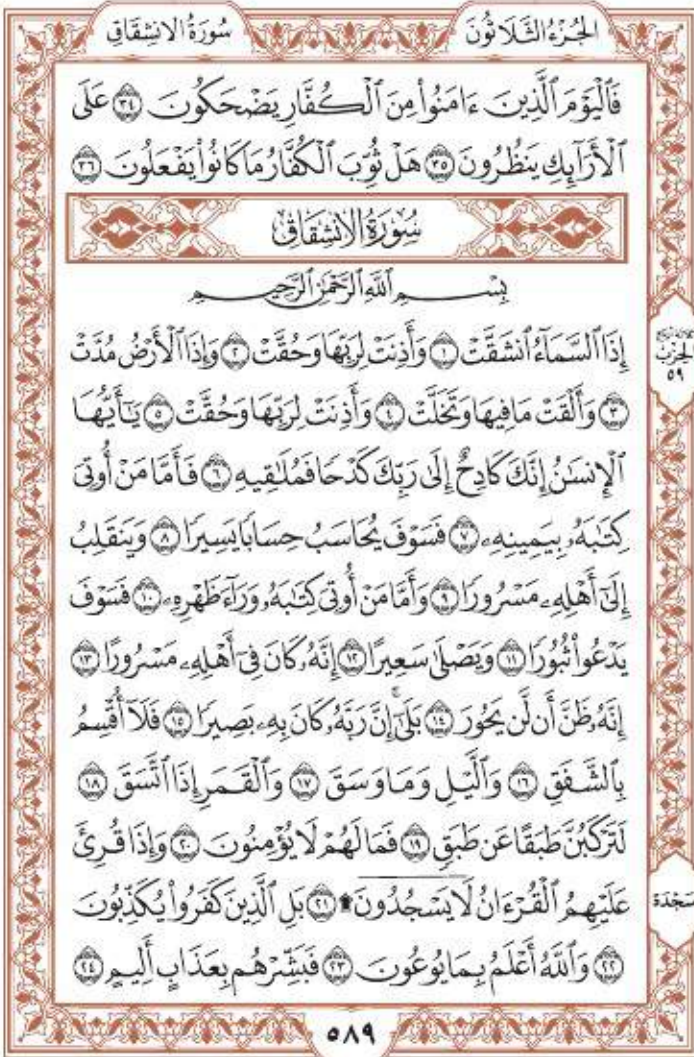 سُورَةُ الانشِقَاقِ
الجُزْءُ الثَّلَاثُونَ
فَٱلْيَوْمَ ٱلَّذِينَ ءَامَنُوا۟ مِنَ ٱلْكُفَّارِ يَضْحَكُونَ ٣٤ عَلَى
ٱلْأَرَآئِكِ يَنظُرُونَ ٣٥ هَلْ ثُوِّبَ ٱلْكُفَّارُ مَا كَانُوا۟ يَفْعَلُونَ ٣٦
سُورَةُ الانشِقَاقِ
بِسْمِ ٱللَّهِ ٱلرَّحْمَٰنِ ٱلرَّحِيمِ
إِذَا ٱلسَّمَآءُ ٱنشَقَّتْ ١ وَأَذِنَتْ لِرَبِّهَا وَحُقَّتْ ٢ وَإِذَا ٱلْأَرْضُ مُدَّتْ
٣ وَأَلْقَتْ مَا فِيهَا وَتَخَلَّتْ ٤ وَأَذِنَتْ لِرَبِّهَا وَحُقَّتْ ٥ يَٰٓأَيُّهَا
ٱلْإِنسَٰنُ إِنَّكَ كَادِحٌ إِلَىٰ رَبِّكَ كَدْحًا فَمُلَٰقِيهِ ٦ فَأَمَّا مَنْ أُوتِىَ
كِتَٰبَهُۥ بِيَمِينِهِۦ ٧ فَسَوْفَ يُحَاسَبُ حِسَابًا يَسِيرًا ٨ وَيَنقَلِبُ
إِلَىٰٓ أَهْلِهِۦ مَسْرُورًا ٩ وَأَمَّا مَنْ أُوتِىَ كِتَٰبَهُۥ وَرَآءَ ظَهْرِهِۦ ١٠ فَسَوْفَ
يَدْعُوا۟ ثُبُورًا ١١ وَيَصْلَىٰ سَعِيرًا ١٢ إِنَّهُۥ كَانَ فِىٓ أَهْلِهِۦ مَسْرُورًا ١٣
إِنَّهُۥ ظَنَّ أَن لَّن يَحُورَ ١٤ بَلَىٰٓ إِنَّ رَبَّهُۥ كَانَ بِهِۦ بَصِيرًا ١٥ فَلَآ أُقْسِمُ
بِٱلشَّفَقِ ١٦ وَٱلَّيْلِ وَمَا وَسَقَ ١٧ وَٱلْقَمَرِ إِذَا ٱتَّسَقَ ١٨
لَتَرْكَبُنَّ طَبَقًا عَن طَبَقٍ ١٩ فَمَا لَهُمْ لَا يُؤْمِنُونَ ٢٠ وَإِذَا قُرِئَ
عَلَيْهِمُ ٱلْقُرْءَانُ لَا يَسْجُدُونَ ۩ ٢١ بَلِ ٱلَّذِينَ كَفَرُوا۟ يُكَذِّبُونَ
٢٢ وَٱللَّهُ أَعْلَمُ بِمَا يُوعُونَ ٢٣ فَبَشِّرْهُم بِعَذَابٍ أَلِيمٍ ٢٤
الحِزْب
٥٩
سَجْدَة
٥٨٩